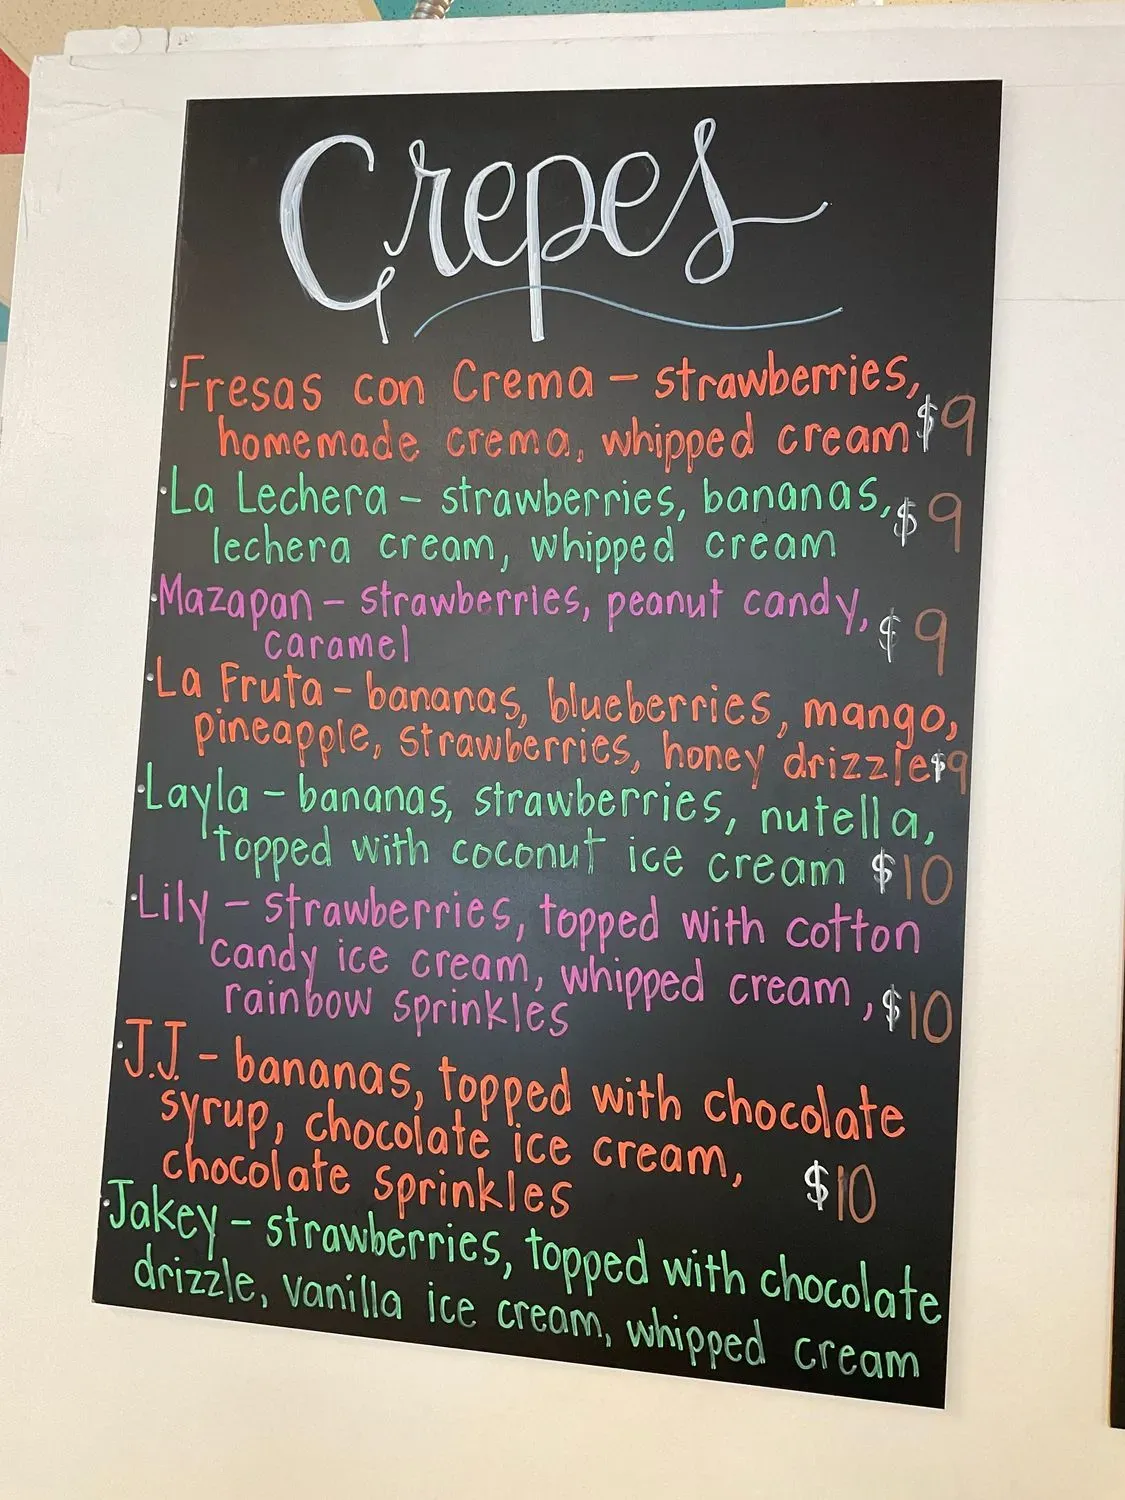 Crepes
Fresas con Crema - strawberries,
homemade crema, whipped cream $9
La Lechera - strawberries, bananas,
lechera cream, whipped cream $9
Mazapan - strawberries, peanut candy,
caramel $9
La Fruta - bananas, blueberries, mango,
pineapple, strawberries, honey drizzle $9
Layla - bananas, strawberries, nutella,
topped with coconut ice cream $10
Lily - strawberries, topped with cotton
candy ice cream, whipped cream,
rainbow sprinkles $10
J.J. - bananas, topped with chocolate
syrup, chocolate ice cream,
chocolate sprinkles $10
Jakey - strawberries, topped with chocolate
drizzle, vanilla ice cream, whipped cream